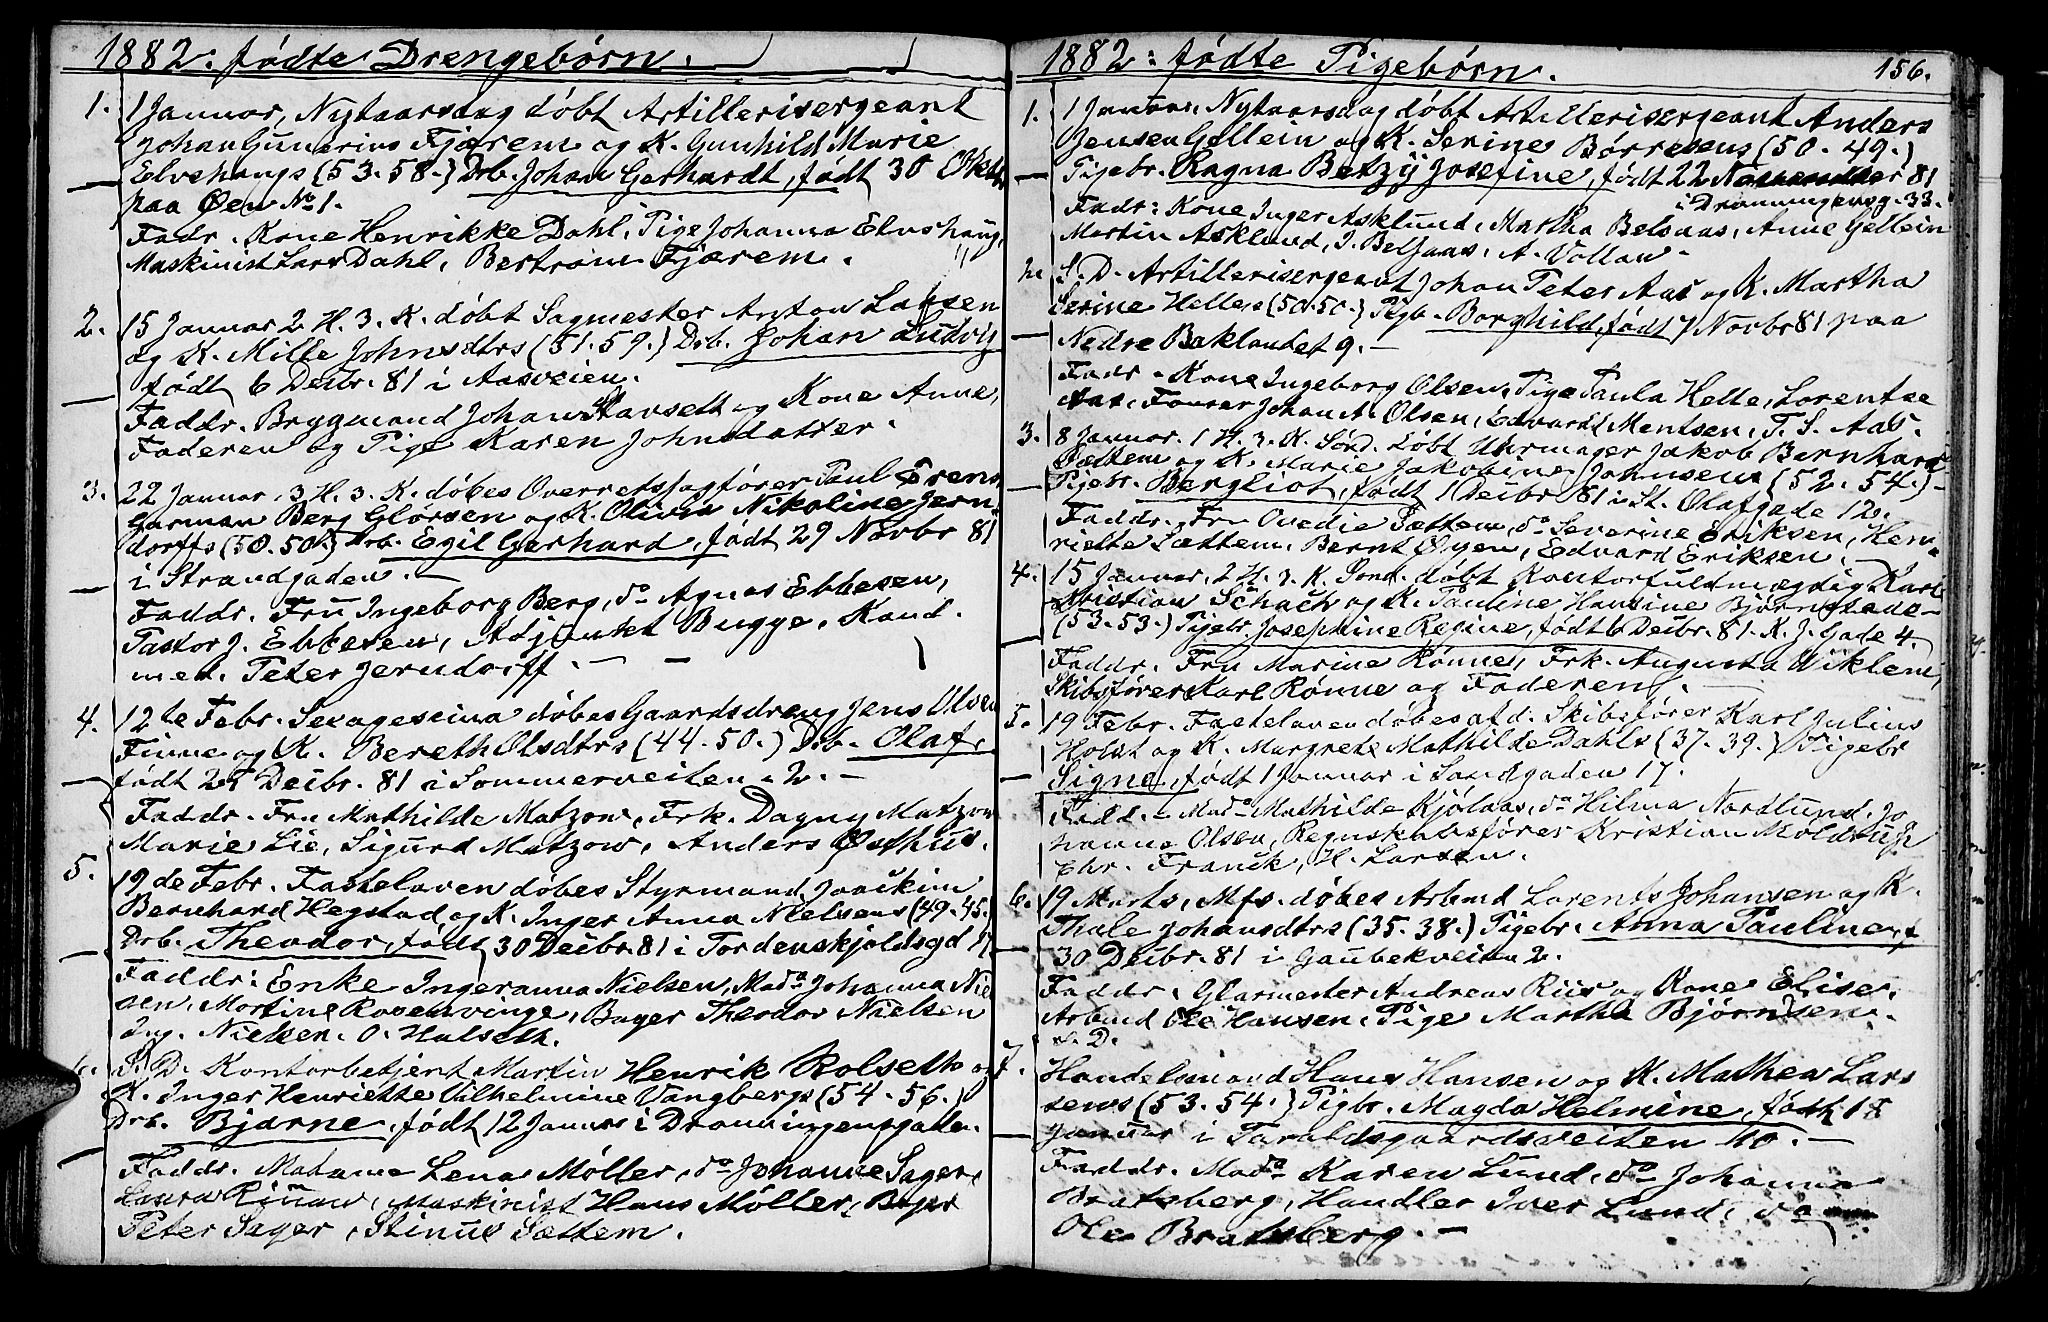 1882. fødte Drengebørn.
1. 1 Januar, Nytaarsdag døbt Artillerisergeant
Johan Gunerius Fjærem og K. Gunhild Marie
Elvehaugs (53.58.) Drb. Johan Gerhardt, født 30 Oktbr
paa Øen No 1.
Fadr. Kone Henrikke Dahl, Pige Johanna Elvehaug,
Maskinist Lars Dahl, Bertram Fjærem.
2. 15 Januar 2 H. 3. K. døbt Sagmester Anton Larsen
og K. Mille Johnsdtrs (51.59.) Drb. Johan Ludvig
født 6 Decbr. 81 i Aasveien.
Faddr. Brygmand Johan Stavseth og Kone Anne,
Faderen og Pige Karen Johnsdatter.
3. 22 Januar, 3 H. 3. K. døbes Overretssagfører Paul
Garman Berg Glørsen og K. Olivia Nikoline Jern-
dorffs (50.50.) Drb. Egil Gerhard, født 29 Novbr 81
i Strandgaden.
Faddr. Fru Ingeborg Berg, do Agnes Ebbesen,
Pastor J. Ebbesen, Adjunkt Bugge, Kand.
med. Peter Jerndorff.
4. 12te Febr. Sexagesima døbes Gaardsdreng Jens Olsen
Finne og K. Bereth Olsdtrs (44.50.) Drb. Olaf,
født 25 Decbr. 81 i Sommerveiten 2.
Faddr. Fru Mathilde Matzow, Frk. Dagny Matzow
Marie Lie, Sigurd Matzow, Anders Østhus.
5. 19de Febr. Fastelaven døbes Styrmand Joackim
Bernhard Hegstad og K. Inger Anna Nielsens (49.45.)
Drb. Theodor, født 30 Decbr. 81 i Tordenskjoldsgd 17
Faddr: Enke Ingeranna Nielsen, Mada Johanna Niel
sen, Martine Rosenvinge, Bager Theodor Nielsen
Ing. Nielsen. O. Halseth.
6. S. D. Kontorbetjent Martin Henrik Rolseth og
K. Inger Henriette Vilhelmine Vangbergs (54.56.)
Drb. Bjarne, født 12 Januar i Dronningensgaden.
Faddr. Madame Lena Møller, do Johanne Sager,
Laura Rinnan, Maskinist Hans Møller, Bager
Peter Sager, Stinus Sættem.
1882: fødte Pigebørn. 156.
1. 1 Januar, Nytaarsdag døbt Artillerisergeant Anders
Jensen Gellein og K. Serine Børresens (50.49.)
Pigebr. Ragna Betzÿ Josefine, født 22 November 81
i Dronningensg. 33.
Fadr: Kone Inger Asklund, Martha Belsaas, Anne Gellein
Martin Asklund, J. Belsaas, A. Vollan.
2. S. D. Artillerisergeant Johan Peter Aas og K. Martha
Serine Helles (50.50.) Pigb. Borghild, født 7 Novbr 81 paa
Nedre Baklandet 9.
Fadr. Kone Ingeborg Olsen, Pige Paula Helle, Lorentse
Aas, Johan A. Olsen, Edvard Mentsen, T. S. Aas.
3. 8 Januar. 1 H. 3. K. Sønd. døbt Uhrmager Jakob Bernhard
Sættem og K. Marie Jakobine Johnsens (52.54.)
Pigebr. Bergliot, født 1 Decbr 81 i St. Olafgade 12.
Faddr. Fru Ovedie Sættem, do Severine Eriksen, Hen-
riette Sættem, Bernt Øyen, Edvard Eriksen.
4. 15 Januar, 2 H. 3. K. Sønd. døbt Kontorfuldmægtig Karl
Kristian Schach og K. Pauline Hansine Bjørnstade
(53.53.) Pigebr. Josephine Regine, født 6 Decbr. 81. K. J. Gade 4.
Faddr. Fru Marine Rønne, Frk. Augusta Wiklem,
Skibsfører Karl Rønne og Faderen.
5. 19 Febr. Fastelaven døbes afd. Skibsfører Karl Julius
Holst og K. Margrete Mathilde Dahls (37.39.) Pigebr
Signe, født 1 Januar i Sandgaden 17.
Fadd. Mada Mathilde Kjølaas, do Hilma Nordlund, Jo
hanna Olsen, Regnskabsfører Kristian Moldrup
Chr. Franck, H. Larsen.
6. 19 Marts, Mfs. døbes Arbmd Lorents Johansen og K.
Thale Johansdtrs (35.38.) Pigebr. Anna Pauline, f
30 Decbr. 81 i Gaubekveiten 2.
Faddr. Glarmester Andreas Riis og Kone Elise,
Arbmd Ole Hansen, Pige Martha Bjørnsen.
7. S. D.
Handelsmand Hans Hansen og K. Mathea Lar
sens (53.54.) Pigbr. Magda Helmine, født 18
Januar i Taraldsgaardsveiten 10.
Faddr. Mada Karen Lund, do Johanna
Bratsberg, Handler Iver Lund, do
Ole Bratsberg.